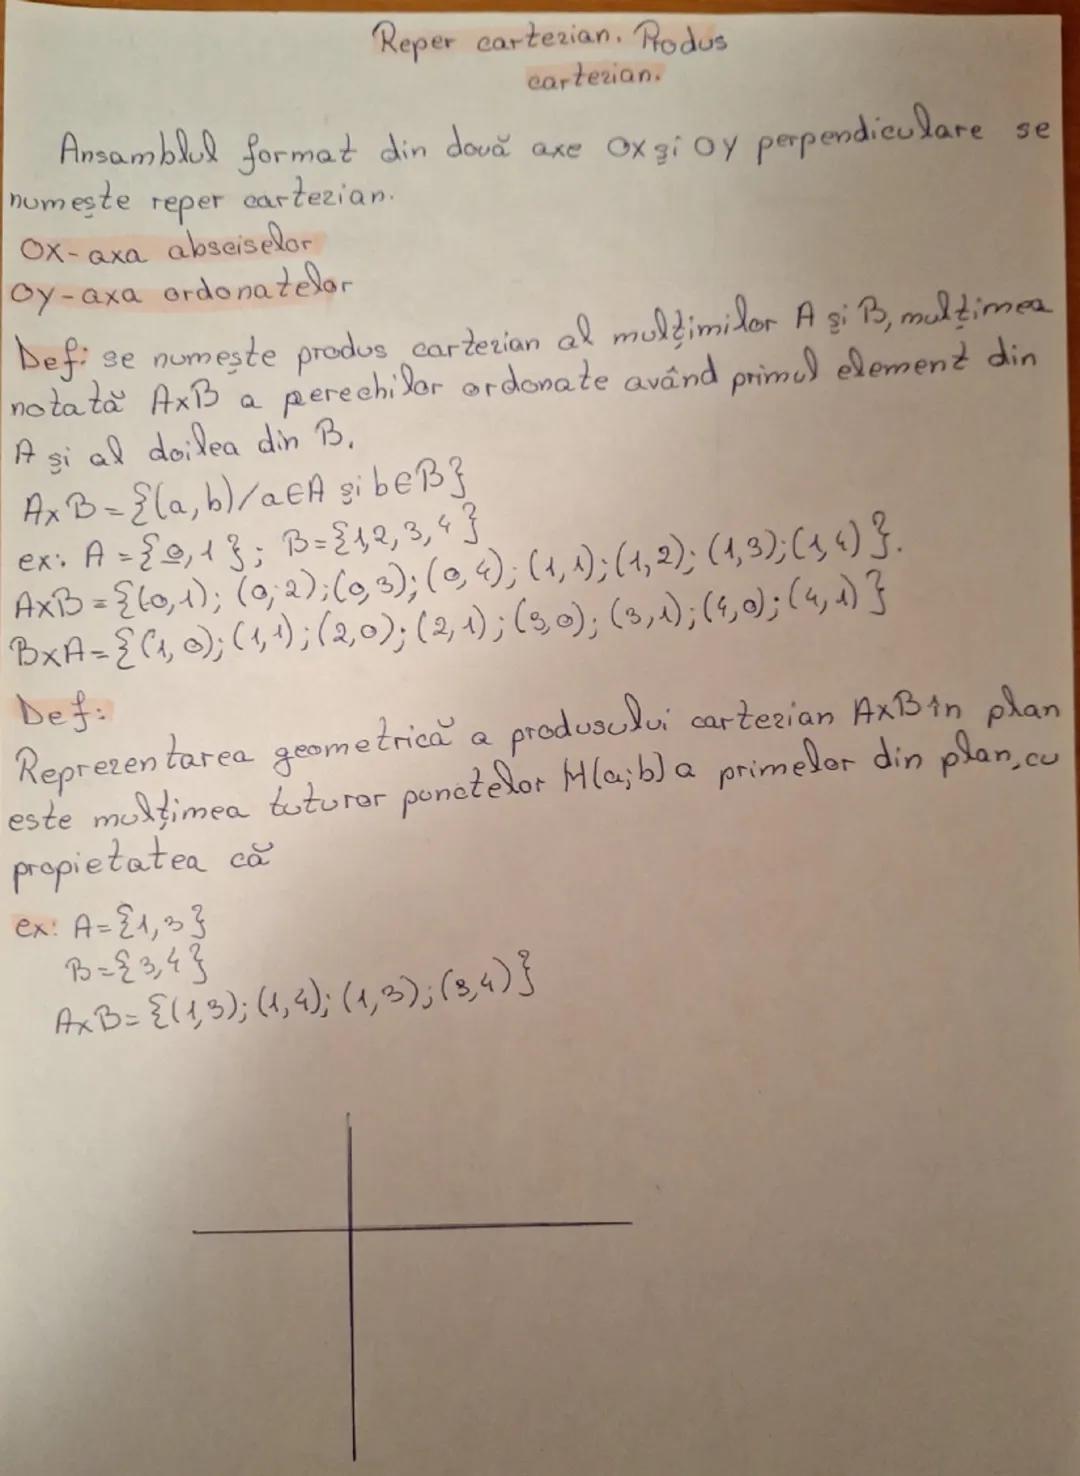 Reper cartezian. Produs
cartezian.
Ansamblul format din două axe OX și OY perpendiculare se
numește reper cartezian.
OX-axa absciselor
OY-axa ordonatelor
Def: se numește produs cartezian al mulțimilor A și B, mulțimea
notată AxB a perechilor ordonate având primul element din
A și al doilea din B.
AxB={(a,b)/a∈A și b∈B}
ex: A={0,1}; B={1,2,3,4}
AxB={(0,1); (0;2);(0,3);(0,4);(1,1);(1,2);(1,3);(1,4)}.
BxA={(1,0);(1,1);(2,0);(2,1);(3,0);(3,1);(4,0);(4,1)}
Def:
Reprezentarea geometrică a produsului cartezian AxB în plan
este mulțimea tuturor punctelor M(a;b) a primelor din plan, cu
propietatea că
ex: A={1,3}
B={3,4}
AxB={(1,3);(1,4);(1,3);(3,4)}